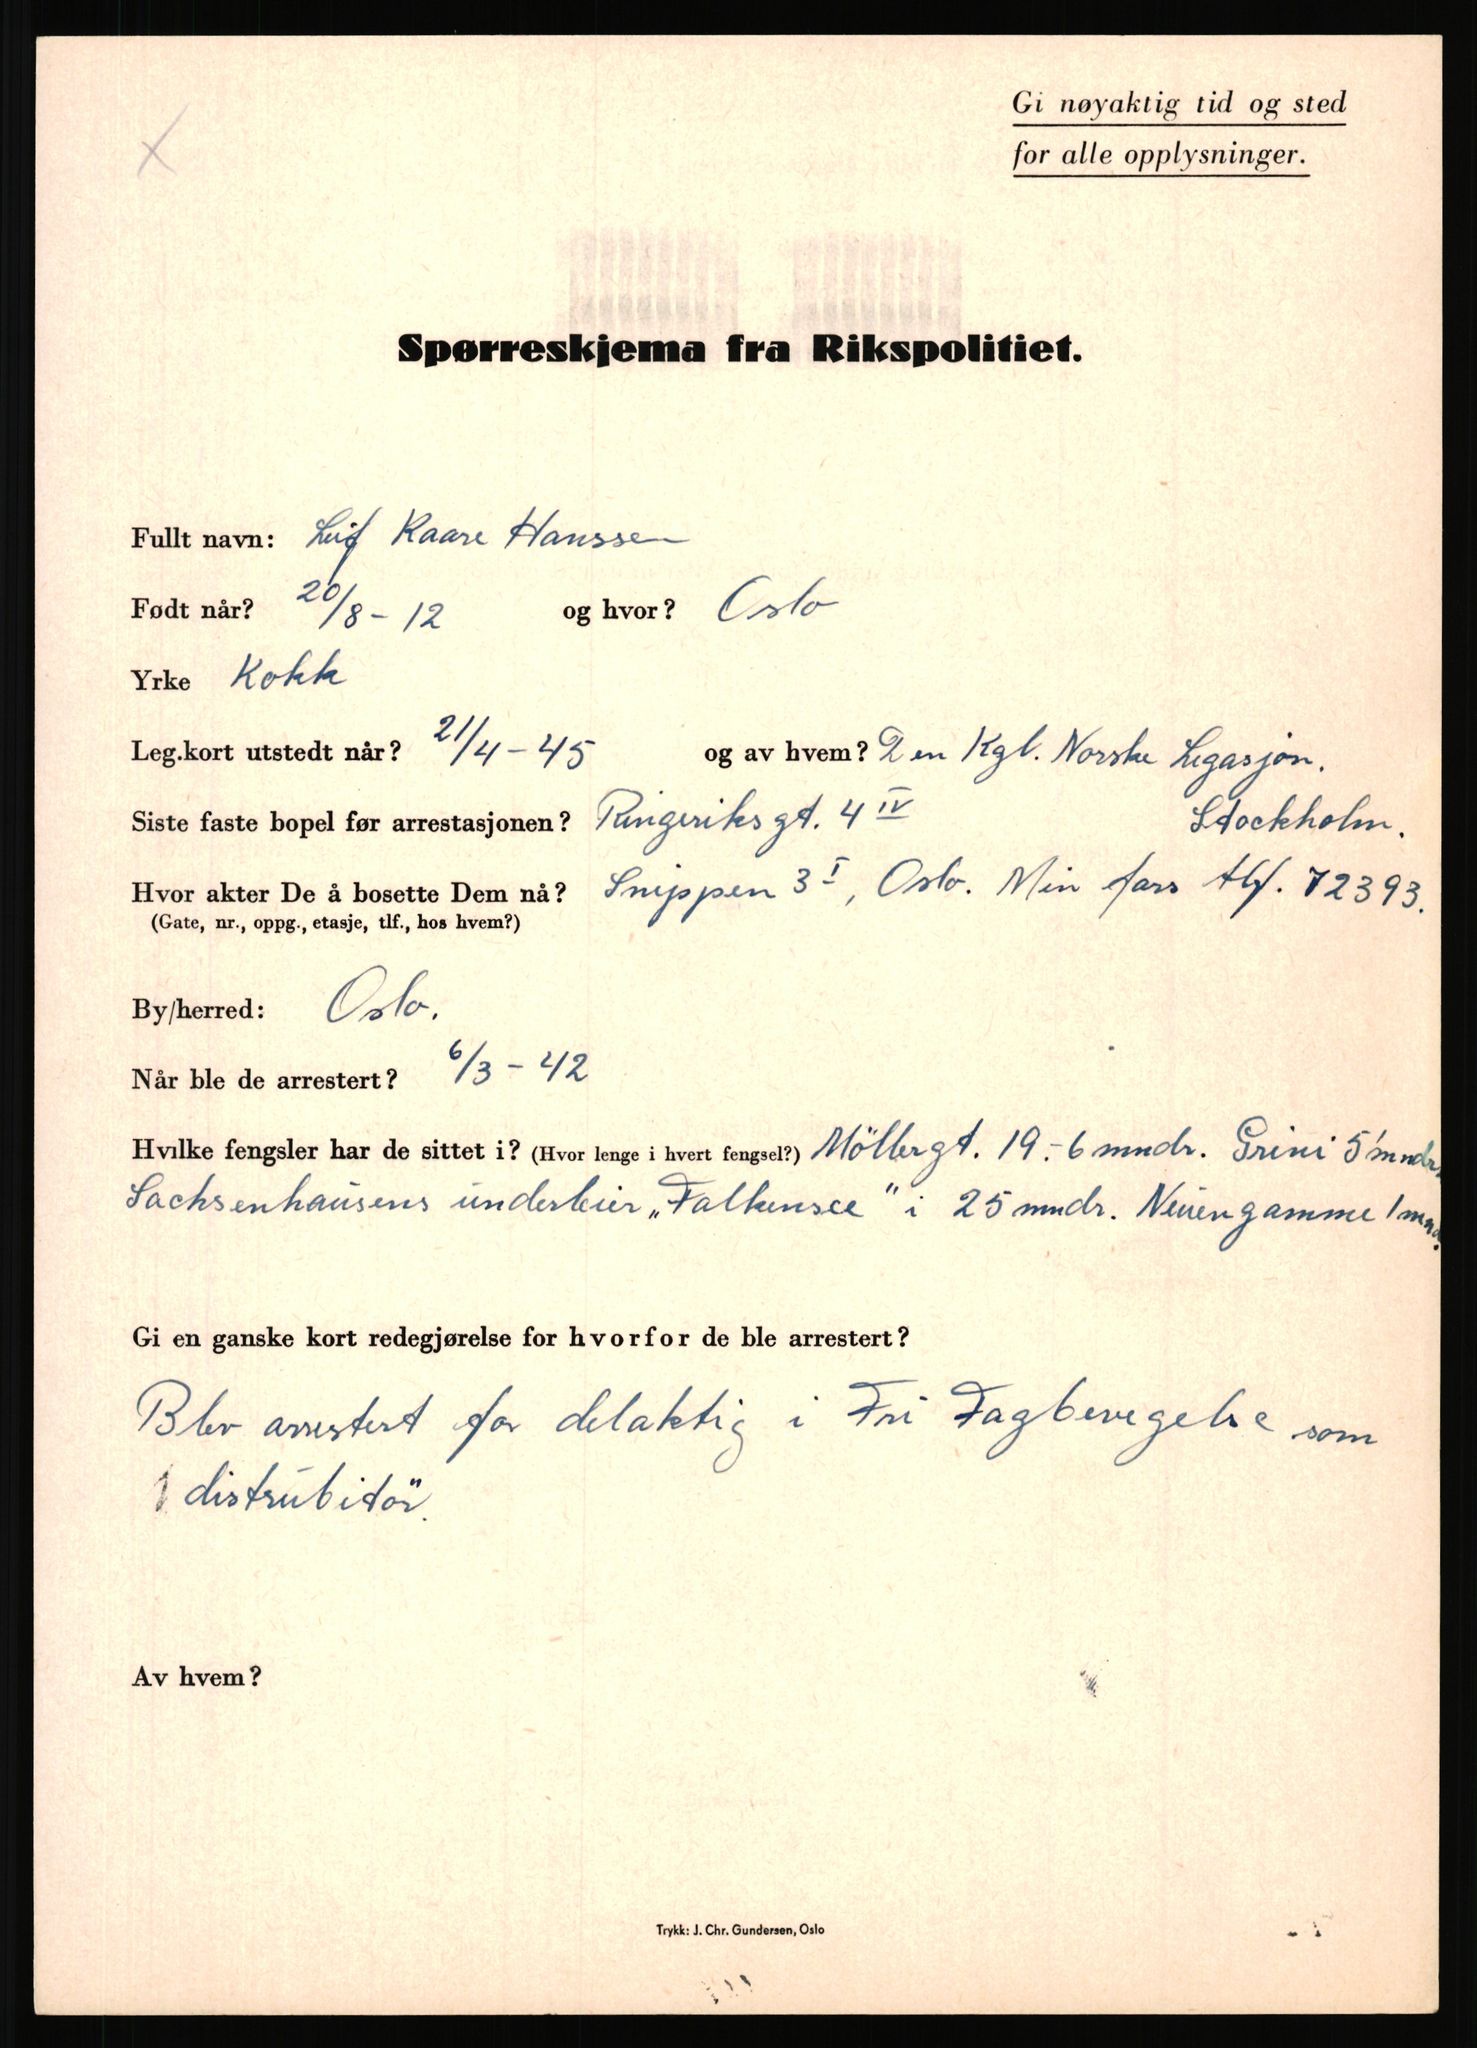 Gi nøyaktig tid og sted
for alle opplysninger.
Spørreskjema fra Rikspolitiet.
Fullt navn: Leif Kaare Hanssen
Født når? 20/8 - 12 og hvor? Oslo
Yrke Kokk
Leg.kort utstedt når? 21/4 - 45 og av hvem? Den Kgl. Norske Legasjon.
Siste faste bopel før arrestasjonen? Ringeriksgt. 4 IV Stockholm.
Hvor akter De å bosette Dem nå? Snippen 3 I, Oslo. Min fars tlf. 72393.
(Gate, nr., oppg., etasje, tlf., hos hvem?)
By/herred: Oslo.
Når ble de arrestert? 6/3 - 42
Hvilke fengsler har de sittet i? (Hvor lenge i hvert fengsel?) Möllergt. 19.- 6 mndr. Grini 5 mndr.
Sachsenhausens underleier „Falkensee" i 25 mndr. Neuengamme 1 mnd.
Gi en ganske kort redegjørelse for hvorfor de ble arrestert?
Blev arrestert for delaktig i Fri Fagbevegelse som
distrubitör.
Av hvem?
Trykk: J. Chr. Gundersen, Oslo